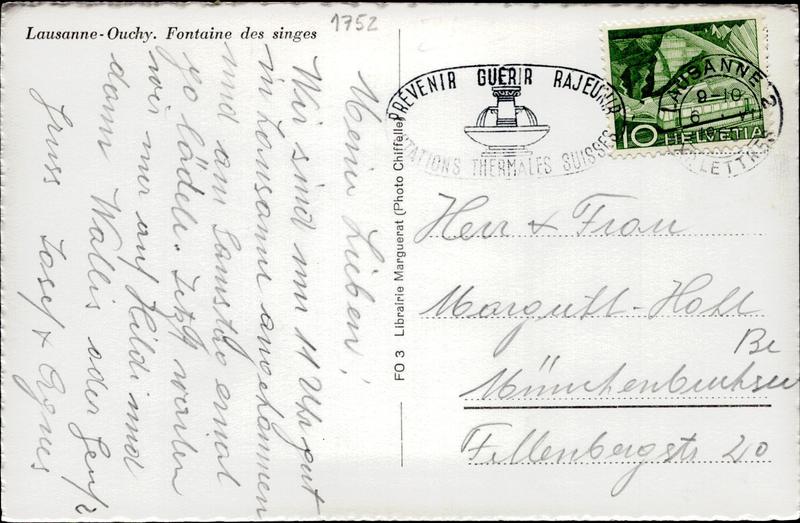 Lausanne-Ouchy. Fontaine des singes
1752
Meine Lieben!
Wir sind um 11 Uhr gut
in Lausanne angekommen
und am Samstag einmal
go lädele. Jetzt warten
wir nur auf Hildi und
dann Wallis oder Genf?
Gruss Josef & Agnes
FO 3 Librairie Marguerat (Photo Chiffelle)
PRÉVENIR GUÉRIR RAJEUNIR
STATIONS THERMALES SUISSES
LAUSANNE 2
9-10
6. V
10 HELVETIA
Herr & Frau
Margutt-Holl
Be
Münchenbuchsee
Fellenbergstr 20